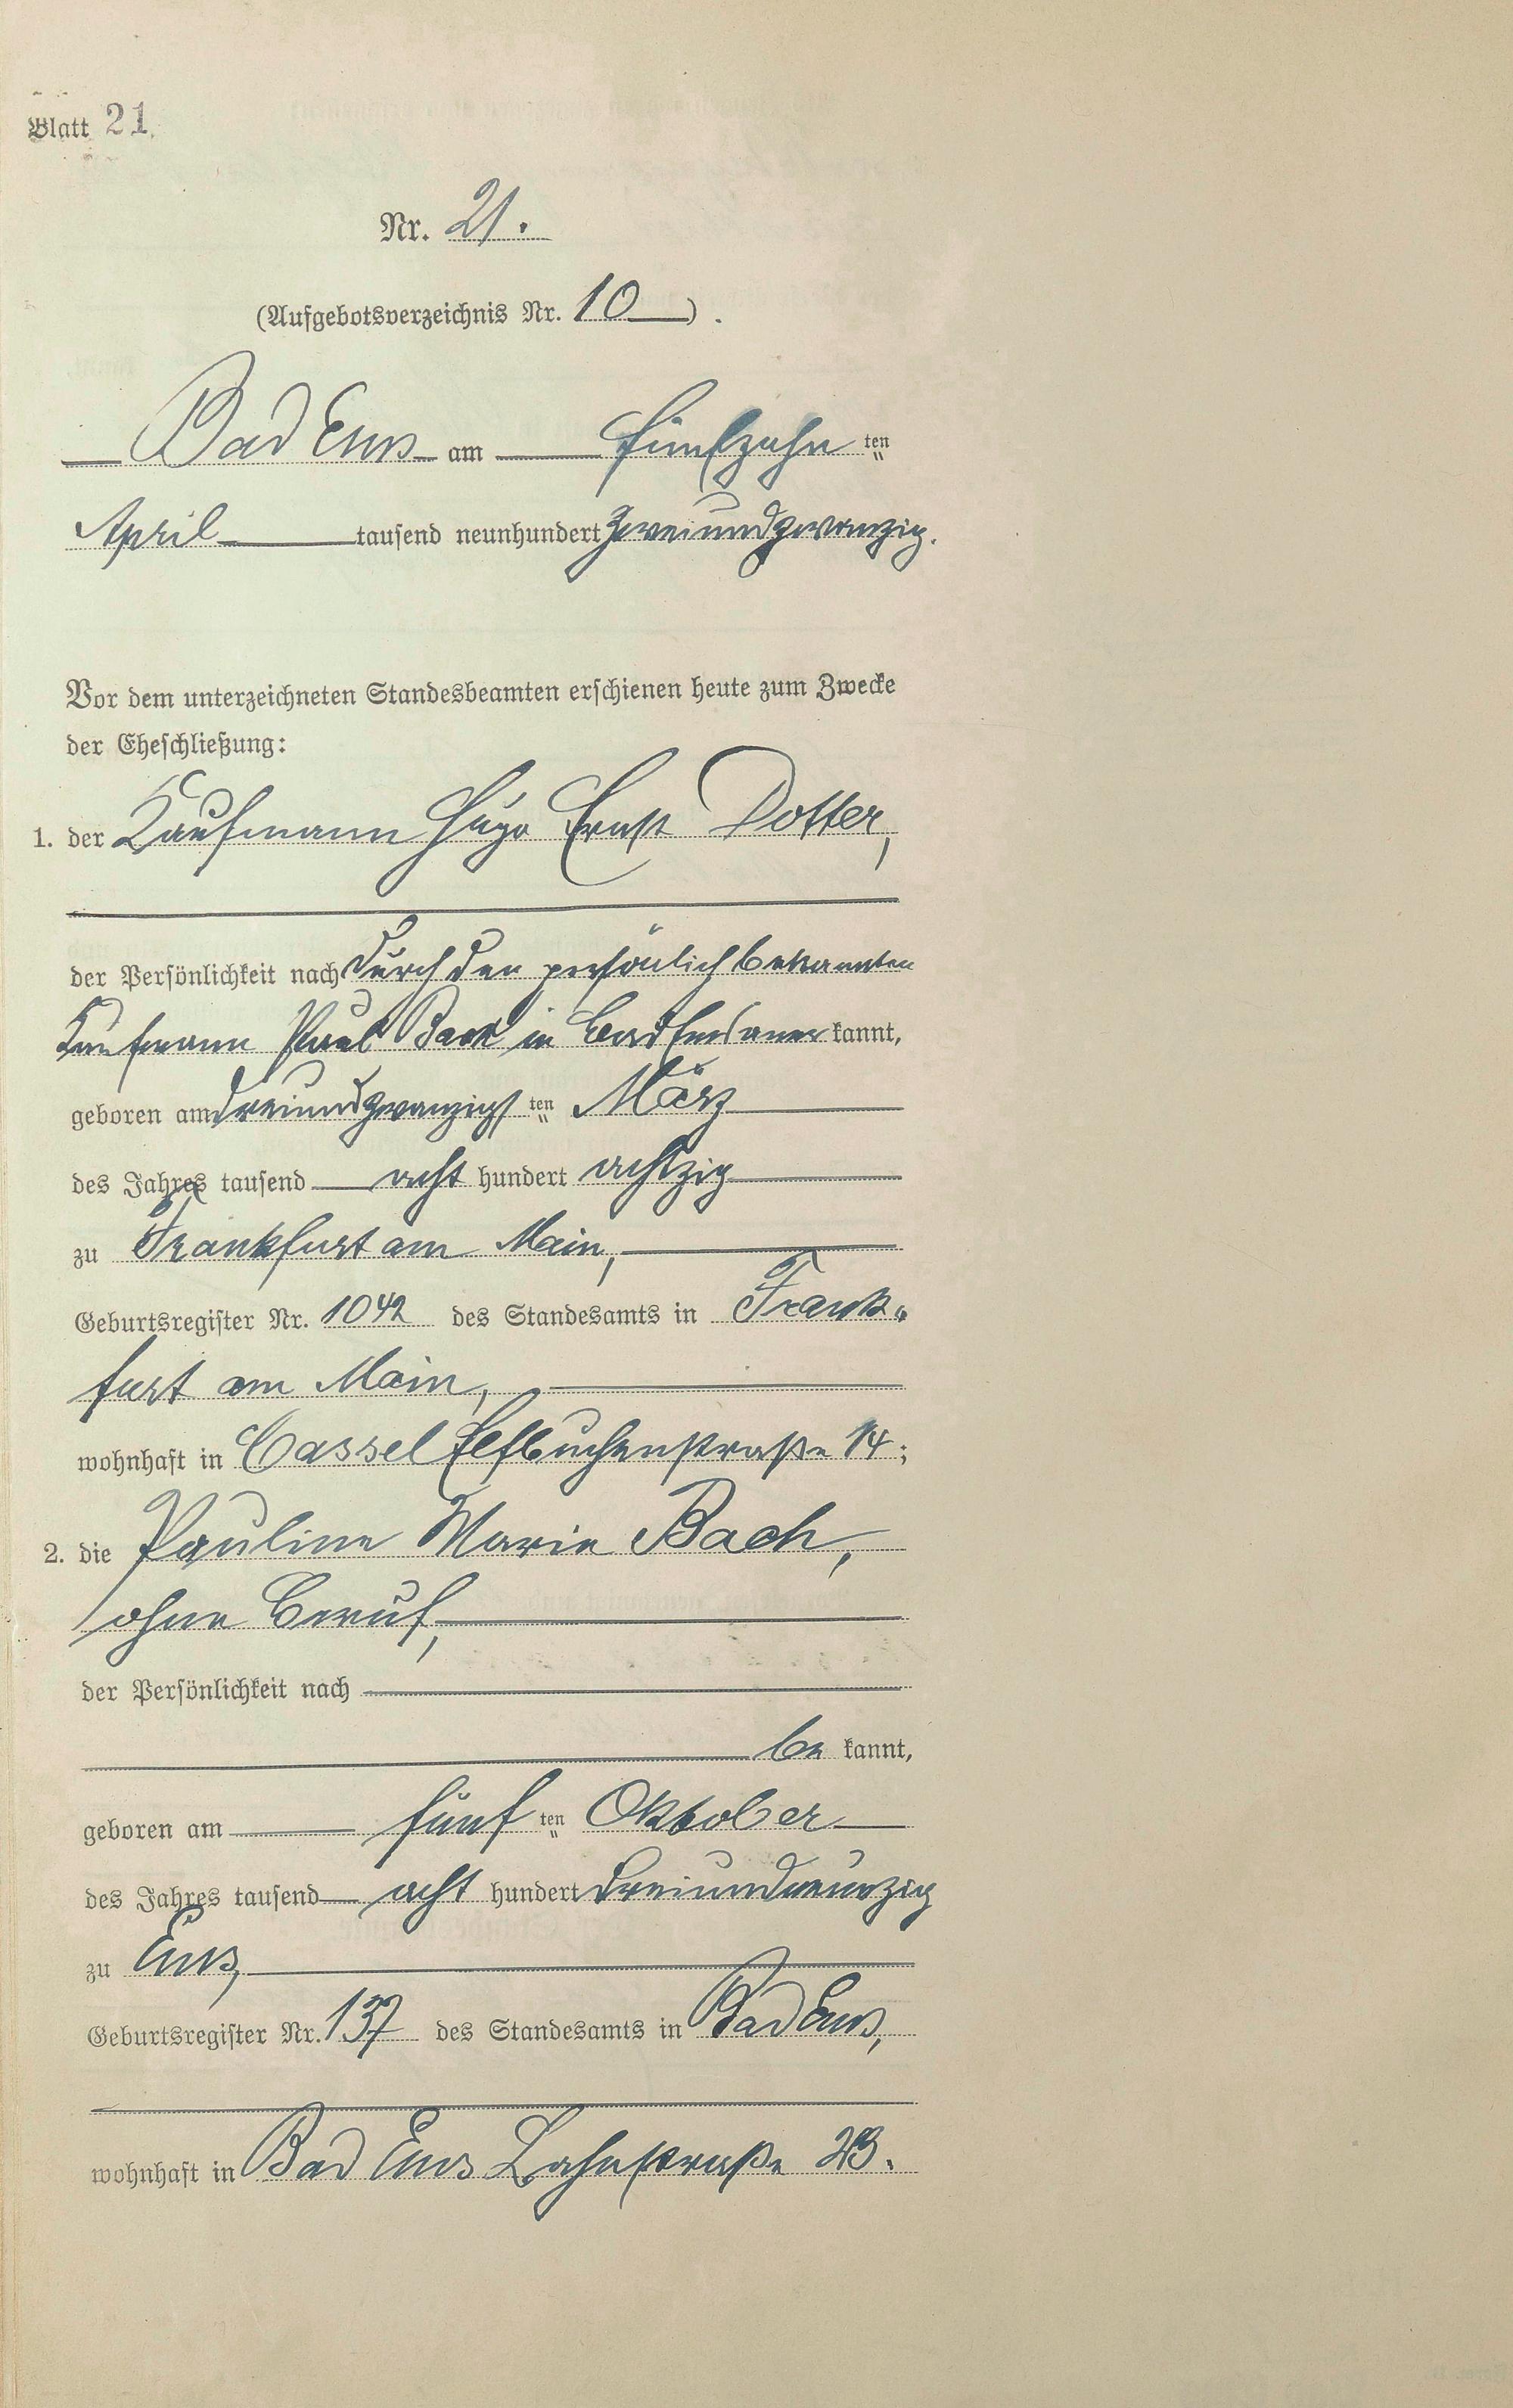 Blatt 21.
Nr. 21.
(Aufgebotsverzeichnis Nr. 10).
Bad Ems am fünfzehn ten
April tausend neunhundert zweiundzwanzig.
Vor dem unterzeichneten Standesbeamten erschienen heute zum Zwecke
der Eheschließung:
1. der Kaufmann Hugo Ernst Dotter,
der Persönlichkeit nach durch den persönlich bekannten
Kaufmann Paul Bach in Bad Ems aner kannt,
geboren am dreiundzwanzigs ten März
des Jahres tausend acht hundert achtzig
zu Frankfurt am Main,
Geburtsregister Nr. 1042 des Standesamts in Frank-
furt am Main,
wohnhaft in Cassel Elfbuchenstraße 14;
2. die Pauline Marie Bach,
ohne Beruf,
der Persönlichkeit nach
be kannt,
geboren am fünf ten Oktober
des Jahres tausend acht hundert dreiundneunzig
zu Ems,
Geburtsregister Nr. 137 des Standesamts in Bad Ems,
wohnhaft in Bad Ems Lahnstraße 23.